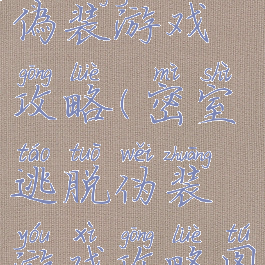 伪装游戏
gōng lüè mì shì
攻略(密室
táo tuō wěi zhuāng
逃脱伪装
yóu xì gōng lüè tú
游戏攻略图